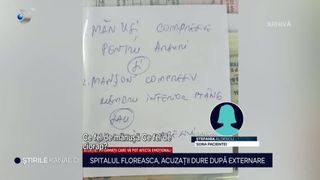 ARHIVĂ
MĂNUȘI COMPRESIE
PENTRU ARSURI
ȘI
2. MANȘON COMPRESIV
MEMBRU INFERIOR STÂNG
SAU
Ce fel de mănușă. Ce fel de
ciorap?
INFORMAȚII CARE VĂ POT AFECTA EMOȚIONAL!
ȘTEFANIA ALDESCU
SORA PACIENTEI
ȘTIRILE KANAL D
SPITALUL FLOREASCA, ACUZAȚII DURE DUPĂ EXTERNARE